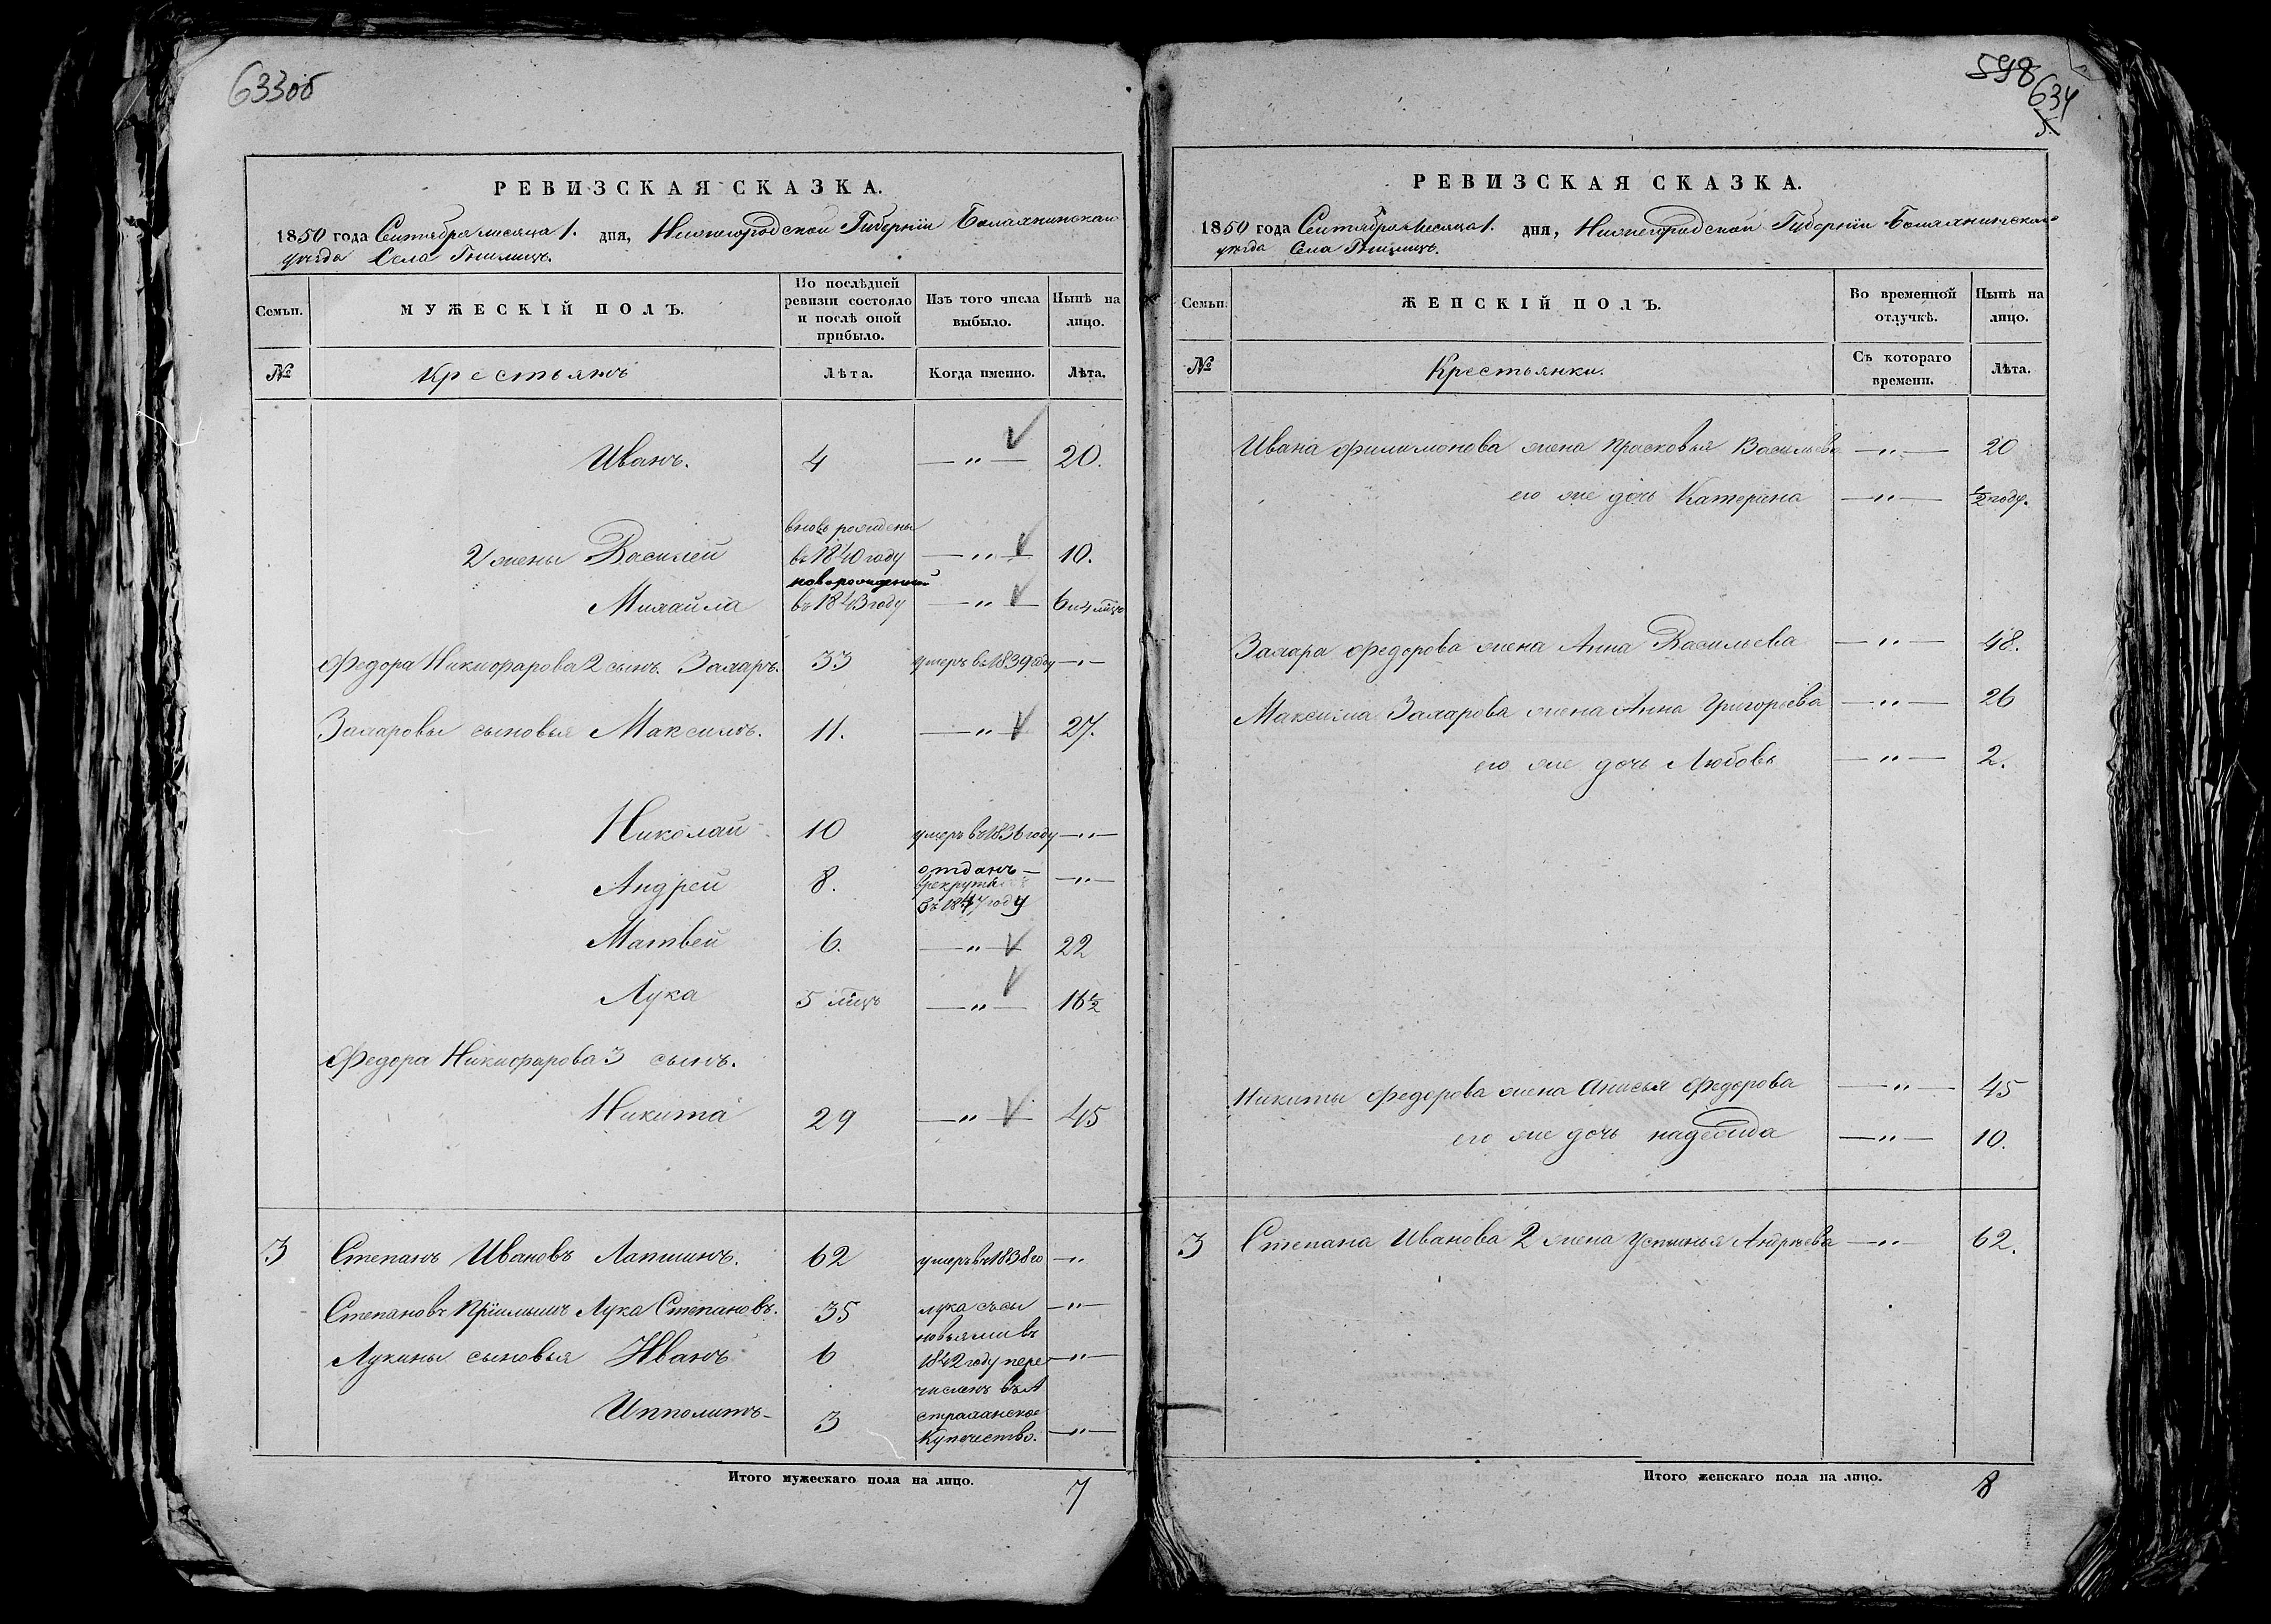 633об
РЕВИЗСКАЯ СКАЗКА.
1850 года Сентября месяца 1. дня, Нижегородской Губерніи Балахнинскаго
уезда Села Гнилицъ.
Семьи.
МУЖЕСКІЙ ПОЛЪ.
По послѣдней ревизіи состояло и послѣ оной прибыло.
Изъ того числа выбыло.
Нынѣ на лицо.
№
Крестьянъ
Лѣта.
Когда именно.
Лѣта.
Иванъ. 4 —"— 20.
2 жены Василей вновь рожденъ въ 1840 году —"— 10.
Михайла новорожденный въ 1843 году —"— 6 и 4 мѣц
Федора Никифарова 2 сынъ. Захаръ. 33 умеръ въ 1839 году —"—
Захаровы сыновья Максимъ. 11. —"— 27.
Николай 10 умеръ въ 1836 году —"—
Андрей 8. отданъ в рекруты въ 1847 году —"—
Матвей 6. —"— 22
Лука 5 мѣцъ —"— 16½
Федора Никифарова 3 сынъ.
Никита 29 —"— 45
3 Степанъ Ивановъ Лапшинъ. 62 умеръ въ 1838 го —"
Степановъ Пріимышъ Лука Степановъ. 35 лука съ сы —"—
новьями въ
Лукины сыновья Иванъ 6 1842 году пере —"—
численъ въ А
Ипполитъ 3 страханское
Купечество. —"—
Итого мужескаго пола на лицо. 7
598
634
5
РЕВИЗСКАЯ СКАЗКА.
1850 года Сентября месяца 1. дня, Нижегородской Губерніи Балахнинскаго
уезда Села Гнилицъ.
Семьи.
ЖЕНСКІЙ ПОЛЪ.
Во временной отлучкѣ.
Нынѣ на лицо.
№
Крестьянки.
Съ котораго времени.
Лѣта.
Ивана филимонова жена прасковья Васильева —"— 20
его же дочь Катерина —"— ½ году.
Захара федорова жена Анна Васильева —"— 48.
Максима Захарова жена Анна Григорьева —"— 26
его же дочь Любовь —"— 2.
Никиты федорова жена анисья федорова —"— 45
его же дочь надежда —"— 10.
3 Степана Иванова 2 жена Устинья Андреева —"— 62.
Итого женскаго пола на лицо. 8